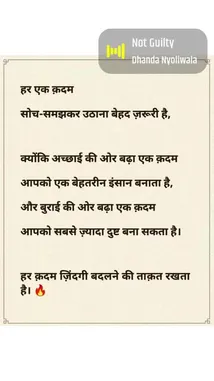 Not Guilty
Dhanda Nyoliwala
हर एक क़दम
सोच-समझकर उठाना बेहद ज़रूरी है,
क्योंकि अच्छाई की ओर बढ़ा एक क़दम
आपको एक बेहतरीन इंसान बनाता है,
और बुराई की ओर बढ़ा एक क़दम
आपको सबसे ज़्यादा दुष्ट बना सकता है।
हर क़दम ज़िंदगी बदलने की ताक़त रखता
है। 🔥